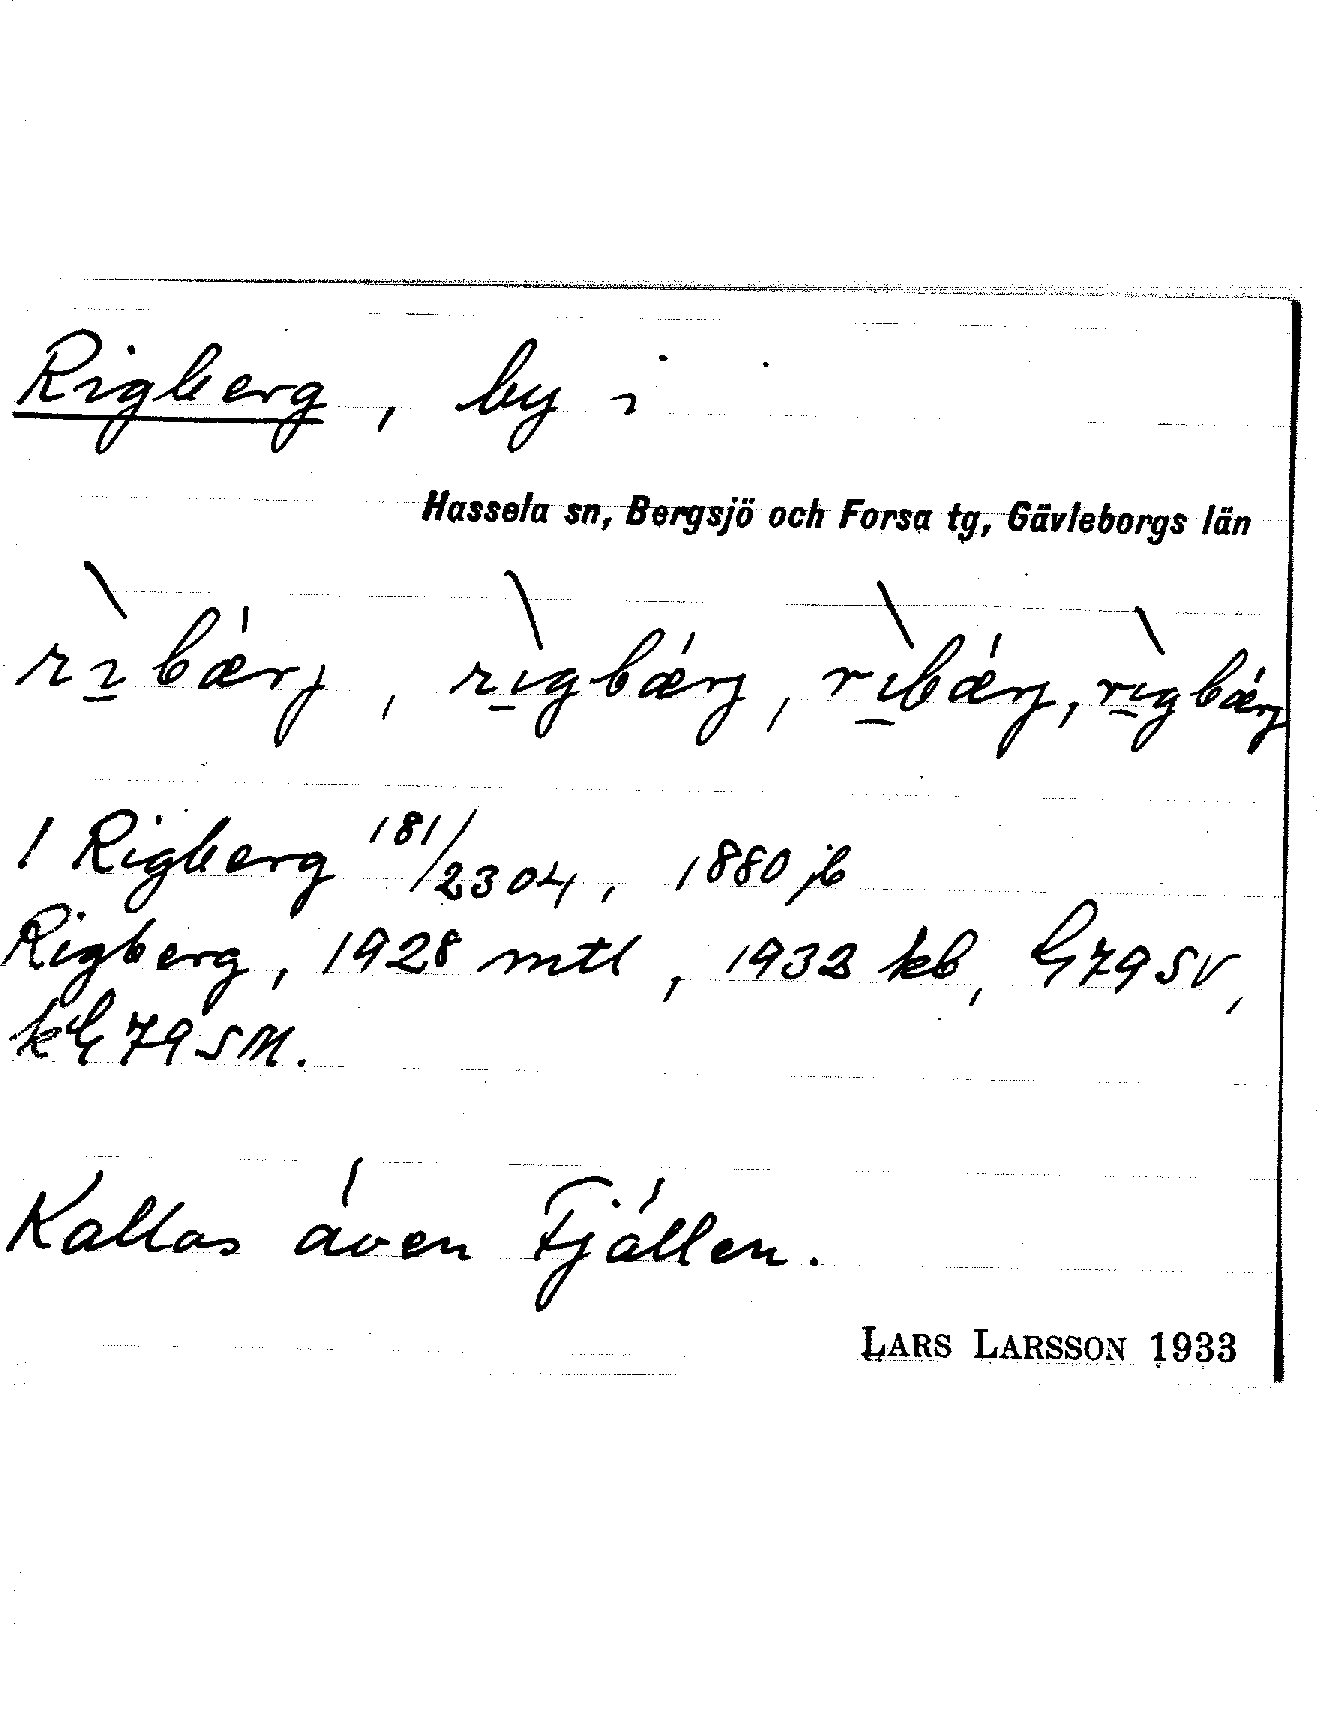 Rigberg, by i
Hassela sn, Bergsjö och Forsa tg, Gävleborgs län
rìbærj, rìgbærj, rìbærj, rìgbærj
1 Rigberg 181/2304, 1880 jb
Rigberg, 1928 mtl, 1932 kb, G79SV,
kG79SM.
Kallas även Fjällen.
LARS LARSSON 1933